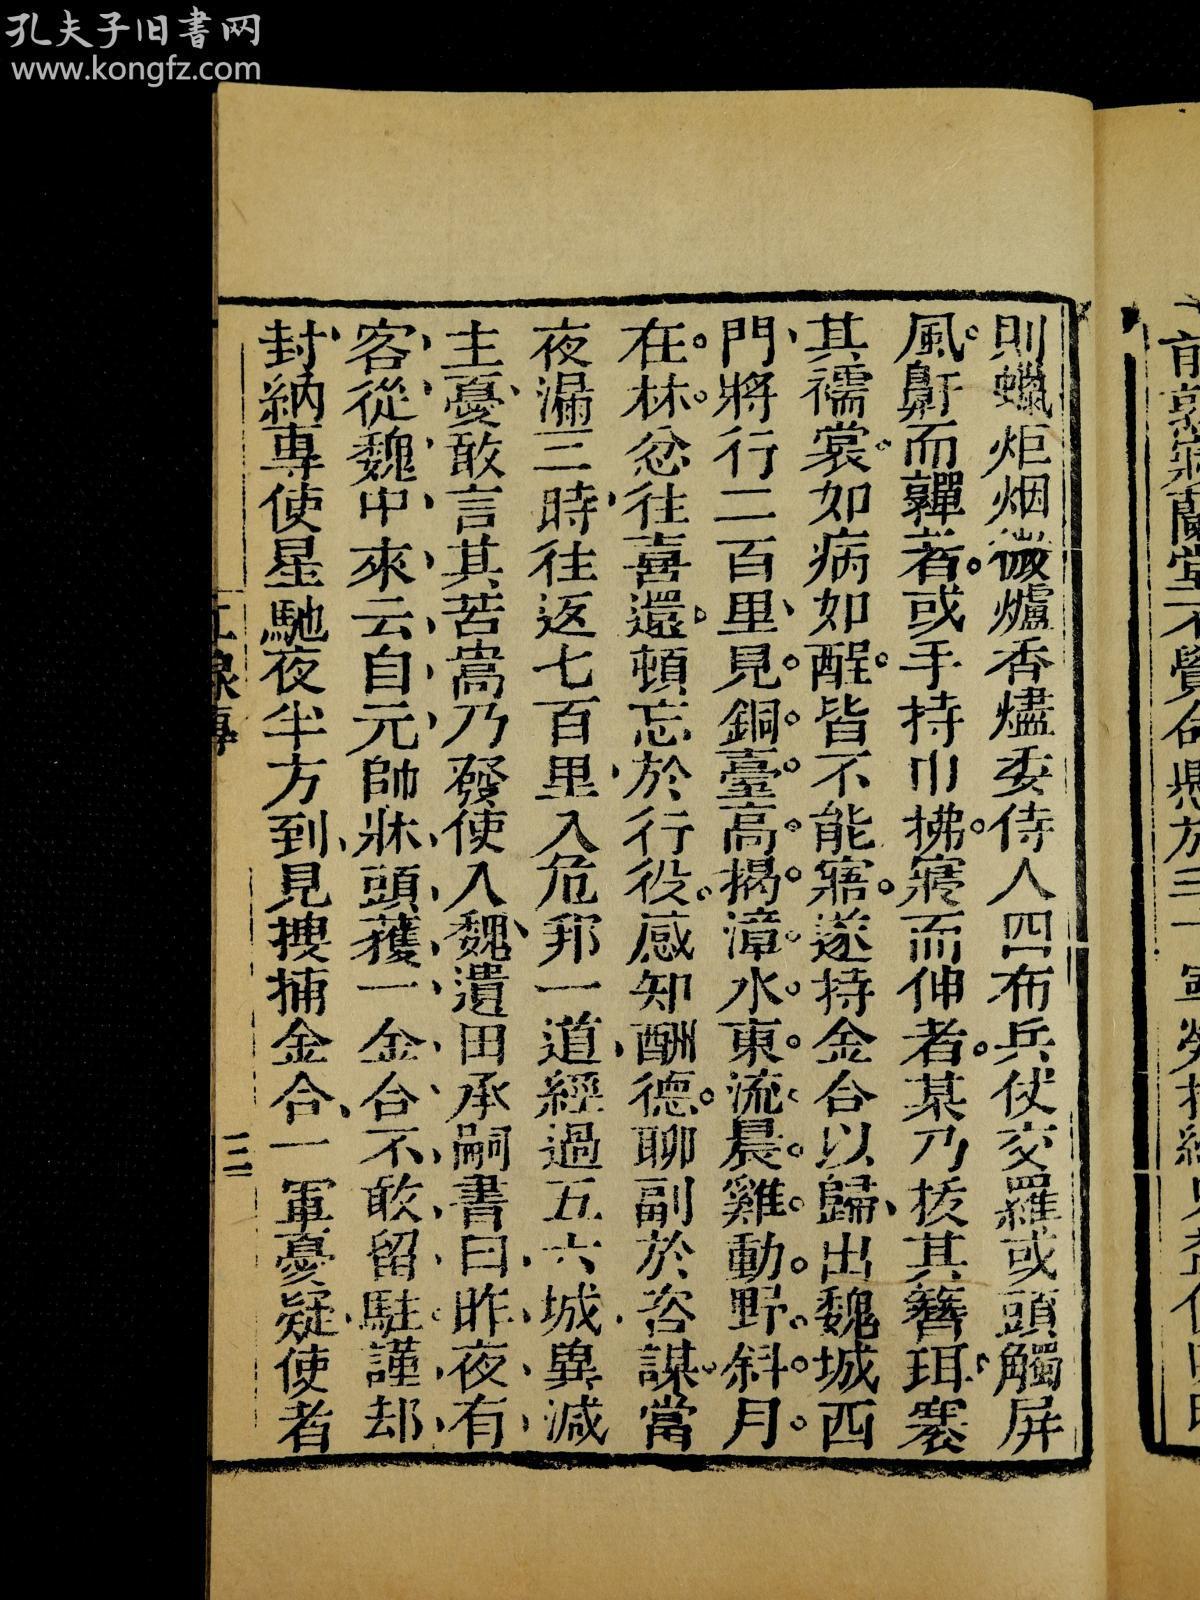 孔夫子旧书网
www.kongfz.com
則蠟炬烟微爐香燼委侍人四布兵仗交羅或頭觸屏
風鼾而嚲者或手持巾拂寢而伸者某乃拔其簪珥褰
其襦裳如病如酲皆不能寤遂持金合以歸出魏城西
門將行二百里見銅臺高揭漳水東流晨雞動野斜月
在林忿往喜還頓忘於行役感知酬德聊副於咨謀當
夜漏三時往返七百里入危邦一道經過五六城兾減
主憂敢言其苦嵩乃發使入魏遺田承嗣書曰昨夜有
客從魏中來云自元帥牀頭獲一金合不敢留駐謹却
封納專使星馳夜半方到見搜捕金合一軍憂疑使者
三